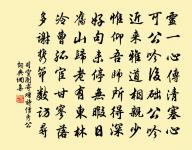 靈一心傳清塞心
可公吟後楚公吟
近來雅道相親少
惟仰吾師所得深
好句未停無暇日
舊山歸老有東林
冷曹孤宦甘寥落
多謝攜筇數訪尋
司空圖寄贈詩僧秀公
詞典網集